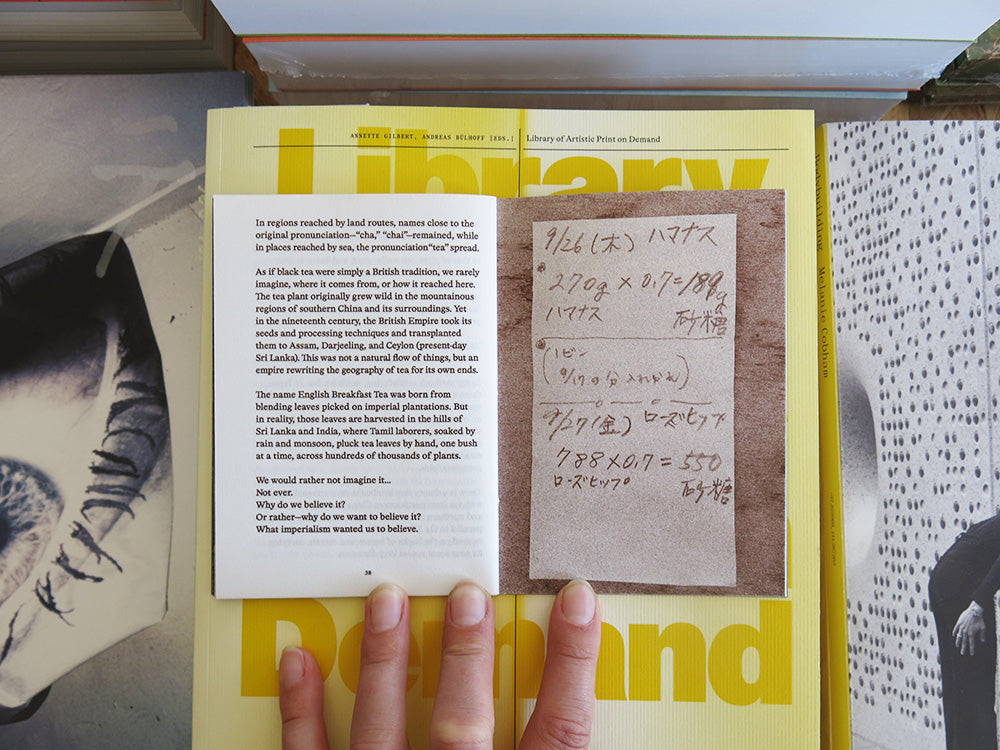 ANNETTE GILBERT, ANDREAS BÜLHOFF [EDS.]
Library of Artistic Print on Demand
Library
Demand
In regions reached by land routes, names close to the
original pronunciation—“cha,” “chai”—remained, while
in places reached by sea, the pronunciation“tea” spread.
As if black tea were simply a British tradition, we rarely
imagine, where it comes from, or how it reached here.
The tea plant originally grew wild in the mountainous
regions of southern China and its surroundings. Yet
in the nineteenth century, the British Empire took its
seeds and processing techniques and transplanted
them to Assam, Darjeeling, and Ceylon (present-day
Sri Lanka). This was not a natural flow of things, but an
empire rewriting the geography of tea for its own ends.
The name English Breakfast Tea was born from
blending leaves picked on imperial plantations. But
in reality, those leaves are harvested in the hills of
Sri Lanka and India, where Tamil laborers, soaked by
rain and monsoon, pluck tea leaves by hand, one bush
at a time, across hundreds of thousands of plants.
We would rather not imagine it...
Not ever.
Why do we believe it?
Or rather—why do we want to believe it?
What imperialism wanted us to believe.
38
9/26(木) ハマナス
270g×0.7=189g
ハマナス 砂糖
(1ビン
9/17の分入れかえ)
9/27(金) ローズヒップ
788×0.7=550
ローズヒップ 砂糖
Bodybuilding Melanie Cobham